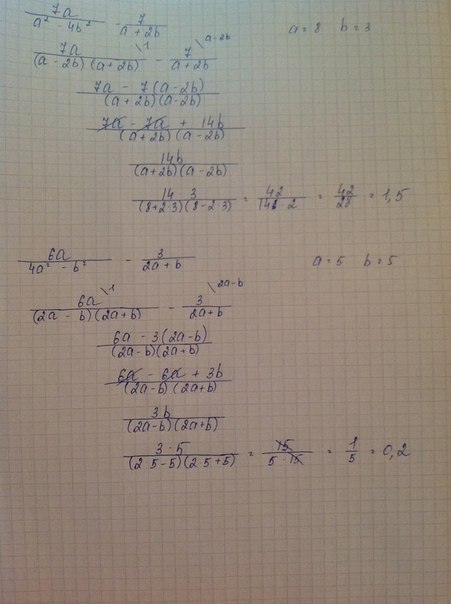 7a / (a² - 4b²) - 7 / (a + 2b)   a = 8   b = 3
7a \1 / ((a - 2b)(a + 2b)) - 7 \a-2b / (a + 2b)
(7a - 7(a - 2b)) / ((a + 2b)(a - 2b))
(7a - 7a + 14b) / ((a + 2b)(a - 2b))
14b / ((a + 2b)(a - 2b))
14·3 / ((8 + 2·3)(8 - 2·3)) = 42 / (14·2) = 42 / 28 = 1,5
6a / (4a² - b²) - 3 / (2a + b)   a = 5   b = 5
6a \1 / ((2a - b)(2a + b)) - 3 \2a-b / (2a + b)
(6a - 3(2a - b)) / ((2a - b)(2a + b))
(6a - 6a + 3b) / ((2a - b)(2a + b))
3b / ((2a - b)(2a + b))
3·5 / ((2·5 - 5)(2·5 + 5)) = 15 / (5·15) = 1 / 5 = 0,2